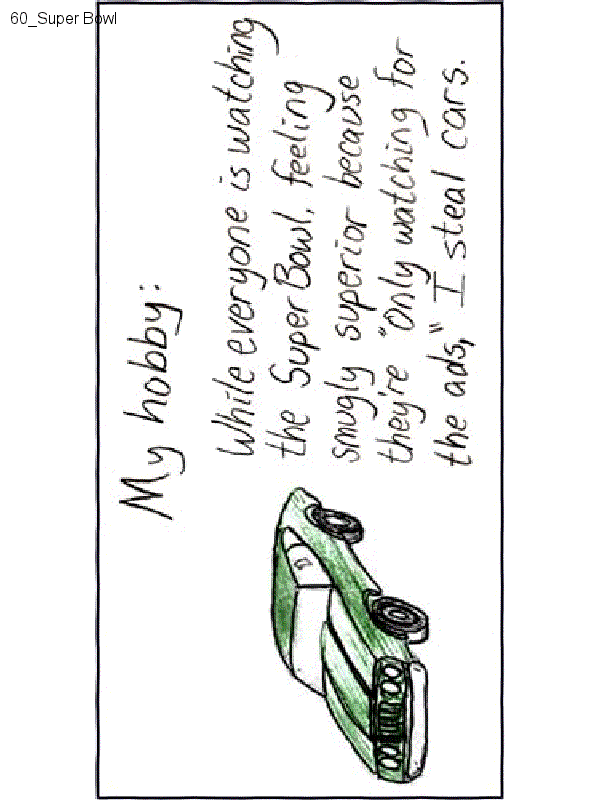 60_Super Bowl
My hobby:
While everyone is watching
the Super Bowl, feeling
smugly superior because
they're "Only watching for
the ads," I steal cars.